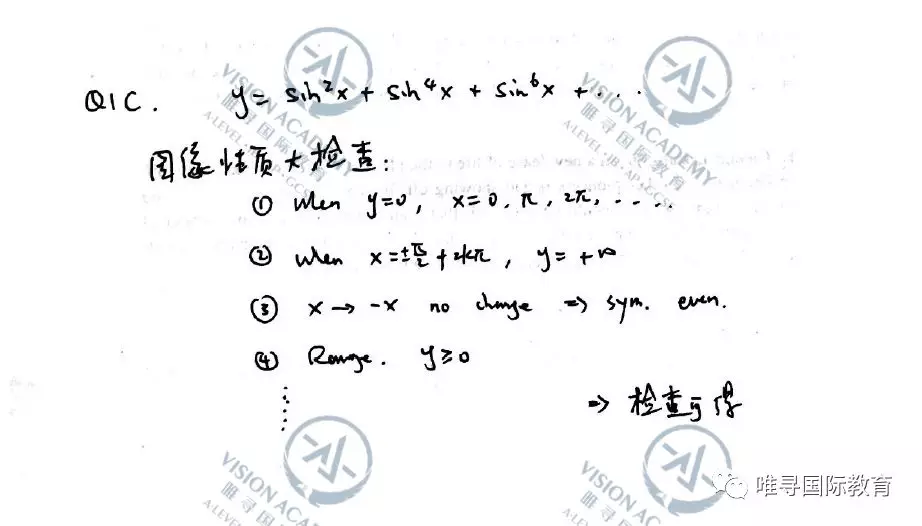 Q1C. y = sin²x + sin⁴x + sin⁶x + ...
图像性质大检查:
① when y=0, x=0, π, 2π, ....
② when x=±π/2+2kπ, y=+∞
③ x → -x no change ⇒ sym. even.
④ Range. y≥0
⇒ 检查可得
VISION ACADEMY
唯寻国际教育
唯寻国际教育